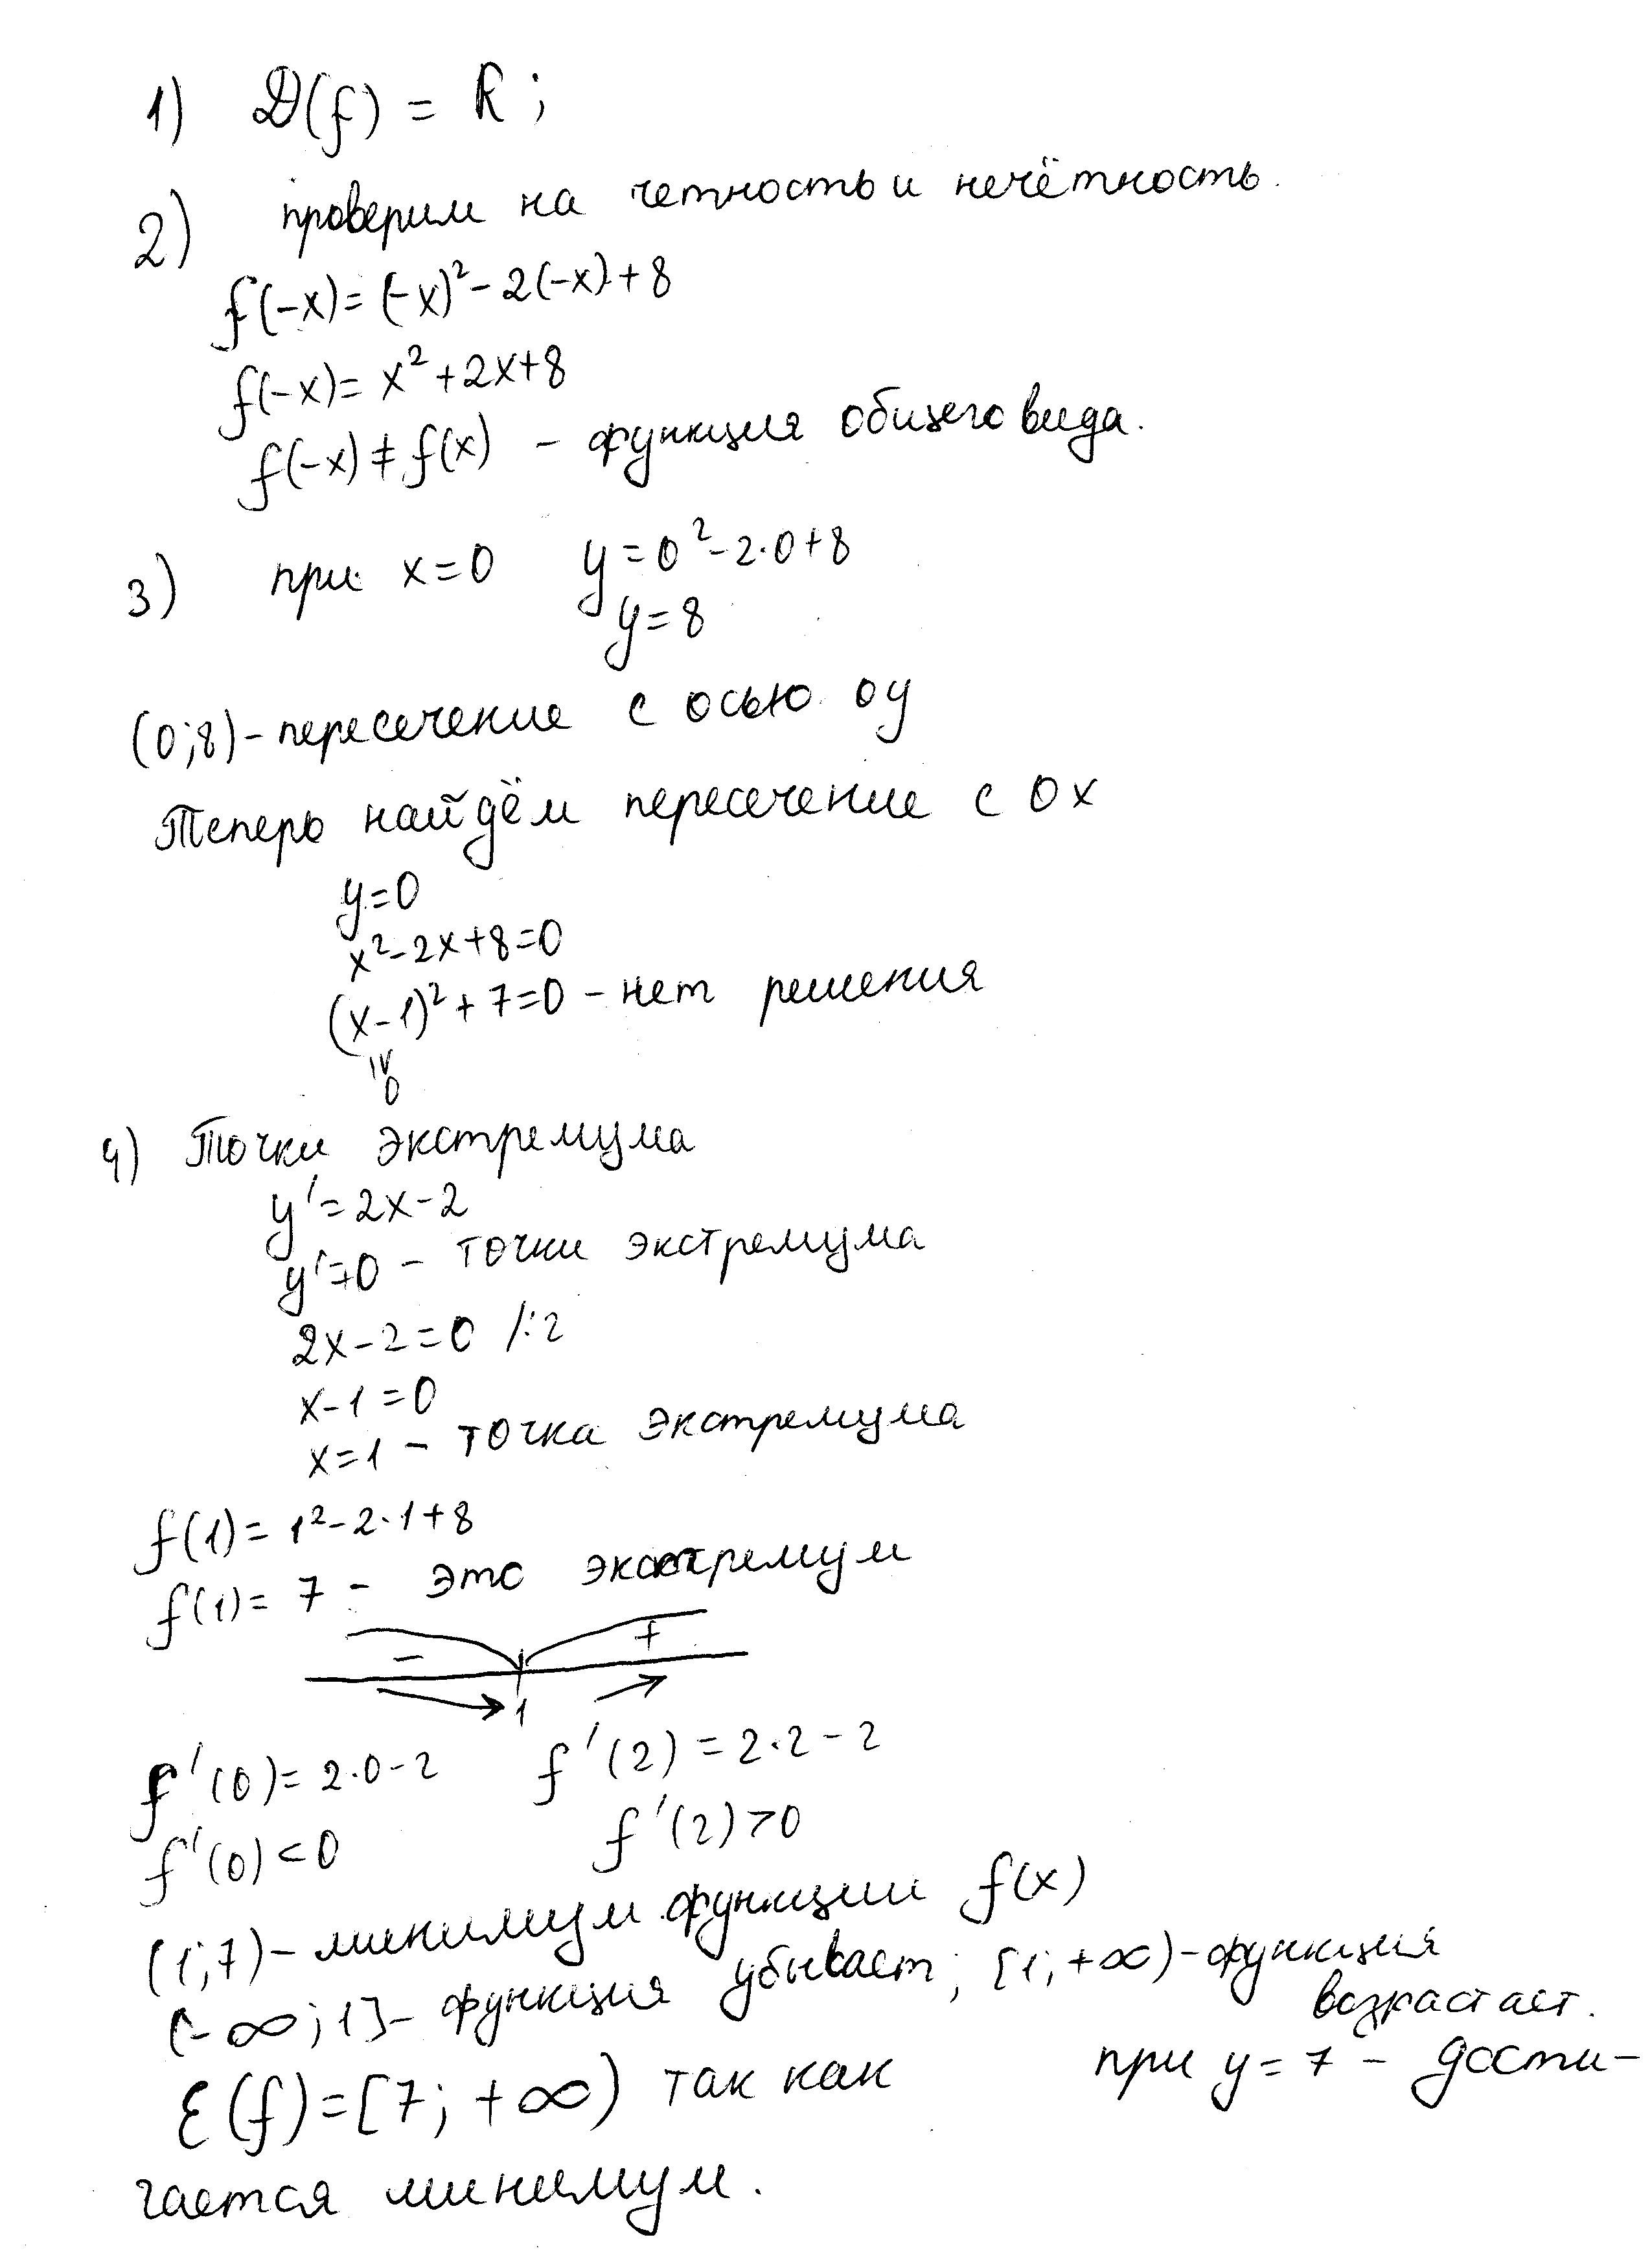 1) D(f) = R;
2) проверим на четность и нечётность.
f(-x) = (-x)² - 2(-x) + 8
f(-x) = x² + 2x + 8
f(-x) ≠ f(x) - функция общего вида.
3) при x=0 y = 0² - 2·0 + 8
y = 8
(0;8) - пересечение с осью оу
Теперь найдём пересечение с Ох
y=0
x² - 2x + 8 = 0
(x-1)² + 7 = 0 - нет решения
≥
0
4) Точки экстремума
y' = 2x - 2
y' = 0 - точки экстремума
2x - 2 = 0 /:2
x - 1 = 0
x = 1 - точка экстремума
f(1) = 1² - 2·1 + 8
f(1) = 7 - это экстремум
- +
1
f'(0) = 2·0 - 2 f'(2) = 2·2 - 2
f'(0) < 0 f'(2) > 0
(1;7) - минимум функции f(x)
(-∞;1] - функция убывает; [1;+∞) - функция
возрастает.
E(f) = [7; +∞) так как при y = 7 - дости-
гается минимум.